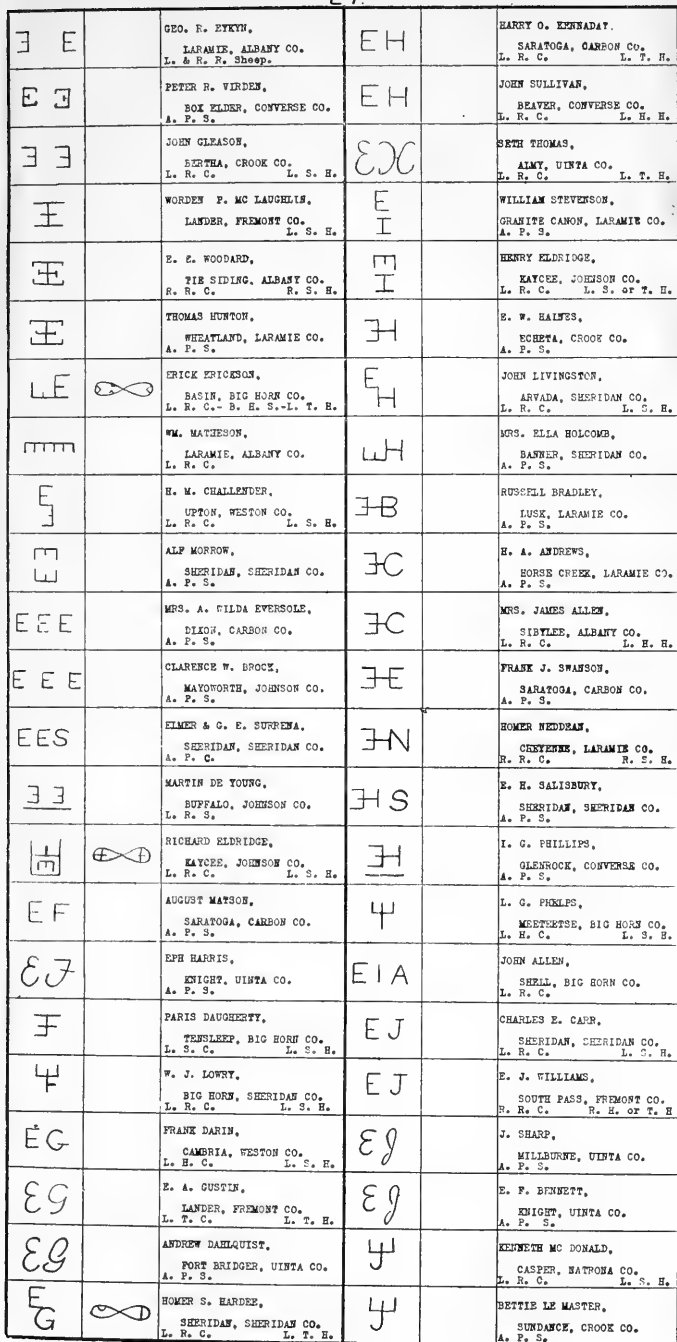 E E
GEO. R. EYKYN,
LARAMIE, ALBANY CO.
L. & R. R. Sheep.
E E
PETER R. VIRDEN,
BOX ELDER, CONVERSE CO.
A. P. S.
E E
JOHN GLEASON,
BERTHA, CROOK CO.
L. R. C. L. S. H.
WORDEN P. MC LAUGHLIN,
LANDER, FREMONT CO.
L. S. H.
E. E. WOODARD,
TIE SIDING, ALBANY CO.
R. R. C. R. S. H.
THOMAS HUNTON,
WHEATLAND, LARAMIE CO.
A. P. S.
E E
ERICK ERICKSON,
BASIN, BIG HORN CO.
L. R. C.- B. H. S.-L. T. H.
WM. MATHESON,
LARAMIE, ALBANY CO.
L. R. C.
E
E
H. M. CHALLENDER,
UPTON, WESTON CO.
L. R. C. L. S. H.
E
E
ALF MORROW,
SHERIDAN, SHERIDAN CO.
A. P. S.
E E E
MRS. A. WILDA EVERSOLE,
DIXON, CARBON CO.
A. P. S.
E E E
CLARENCE W. BROCK,
MAYOWORTH, JOHNSON CO.
A. P. S.
EES
ELMER & G. E. SURRENA,
SHERIDAN, SHERIDAN CO.
A. P. C.
E E
MARTIN DE YOUNG,
BUFFALO, JOHNSON CO.
L. R. S.
RICHARD ELDRIDGE,
KAYCEE, JOHNSON CO.
L. R. C. L. S. H.
E F
AUGUST MATSON,
SARATOGA, CARBON CO.
A. P. S.
EF
EPH HARRIS,
KNIGHT, UINTA CO.
A. P. S.
PARIS DAUGHERTY,
TENSLEEP, BIG HORN CO.
L. S. C. L. S. H.
W. J. LOWRY,
BIG HORN, SHERIDAN CO.
L. R. C. L. S. H.
EG
FRANK DARIN,
CAMBRIA, WESTON CO.
L. H. C. L. S. H.
EG
E. A. GUSTIN,
LANDER, FREMONT CO.
L. T. C. L. T. H.
EG
ANDREW DAHLQUIST,
FORT BRIDGER, UINTA CO.
A. P. S.
E
G
HOMER S. HARDEE,
SHERIDAN, SHERIDAN CO.
L. R. C. L. T. H.
EH
HARRY O. KENNADAY.
SARATOGA, CARBON CO.
L. R. C. L. T. H.
EH
JOHN SULLIVAN,
BEAVER, CONVERSE CO.
L. R. C. L. H. H.
EH
SETH THOMAS,
ALMY, UINTA CO.
L. R. C. L. T. H.
E
I
WILLIAM STEVENSON,
GRANITE CANON, LARAMIE CO.
A. P. S.
E
I
HENRY ELDRIDGE,
KAYCEE, JOHNSON CO.
L. R. C. L. S. or T. H.
EH
E. W. HAINES,
ECHETA, CROOK CO.
A. P. S.
E
H
JOHN LIVINGSTON,
ARVADA, SHERIDAN CO.
L. R. C. L. S. H.
EH
MRS. ELLA HOLCOMB,
BANNER, SHERIDAN CO.
A. P. S.
EB
RUSSELL BRADLEY,
LUSK, LARAMIE CO.
A. P. S.
EC
H. A. ANDREWS,
HORSE CREEK, LARAMIE CO.
A. P. S.
EC
MRS. JAMES ALLEN,
SIBYLEE, ALBANY CO.
L. R. C. L. H. H.
EE
FRANK J. SWANSON,
SARATOGA, CARBON CO.
A. P. S.
HOMER NEDDEAN,
CHEYENNE, LARAMIE CO.
R. R. C. R. S. H.
EH S
E. H. SALISBURY,
SHERIDAN, SHERIDAN CO.
A. P. S.
EH
I. G. PHILLIPS,
GLENROCK, CONVERSE CO.
A. P. S.
L. G. PHELPS,
MEETEETSE, BIG HORN CO.
L. H. C. L. S. H.
EIA
JOHN ALLEN,
SHELL, BIG HORN CO.
L. R. C.
EJ
CHARLES E. CARR,
SHERIDAN, SHERIDAN CO.
L. R. C. L. S. H.
EJ
E. J. WILLIAMS,
SOUTH PASS, FREMONT CO.
R. R. C. R. H. or T. H
EJ
J. SHARP,
MILLBURNE, UINTA CO.
A. P. S.
EJ
E. F. BENNETT,
KNIGHT, UINTA CO.
A. P. S.
KENNETH MC DONALD,
CASPER, NATRONA CO.
L. R. C. L. S. H.
BETTIE LE MASTER,
SUNDANCE, CROOK CO.
A. P. S.